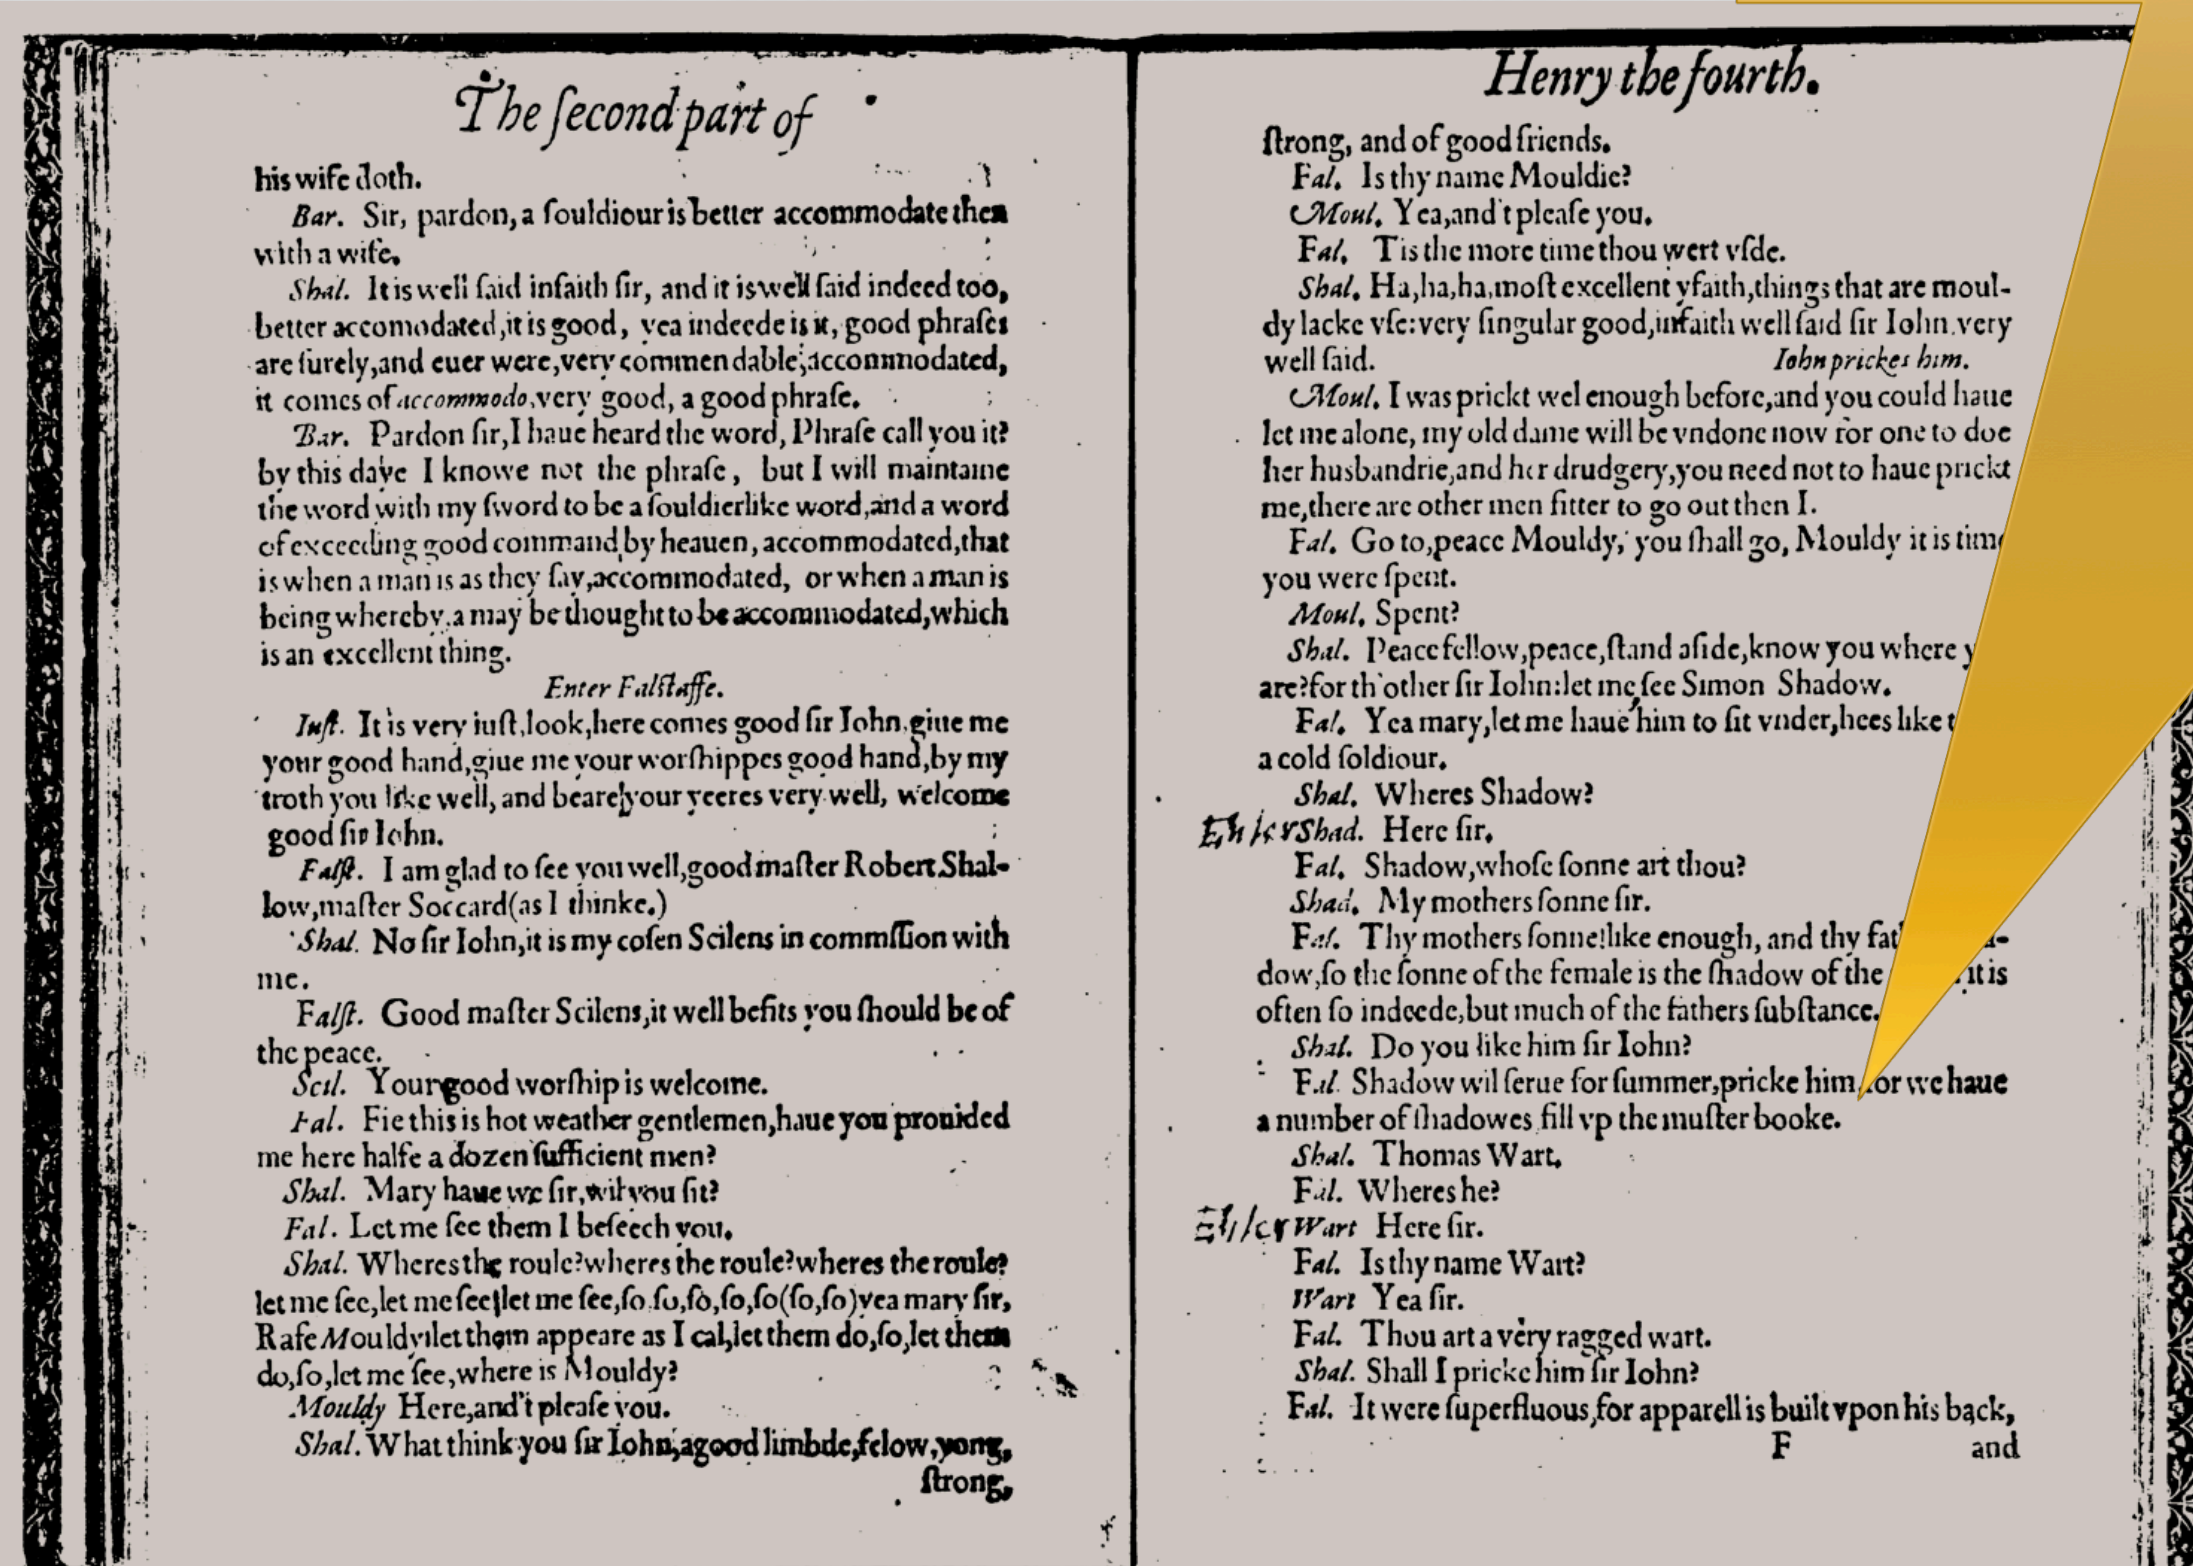 The ſecond part of
his wife doth.
Bar. Sir, pardon, a ſouldiour is better accommodate then
with a wife.
Shal. It is well ſaid infaith ſir, and it is well ſaid indeed too,
better accomodated, it is good, yea indeede is it, good phraſes
are ſurely, and euer were, very commendable, accommodated,
it comes of accommodo, very good, a good phraſe.
Bar. Pardon ſir, I haue heard the word, Phraſe call you it?
by this daye I knowe not the phraſe, but I will maintaine
the word with my ſword to be a ſouldierlike word, and a word
of exceeding good command by heauen, accommodated, that
is when a man is as they ſay, accommodated, or when a man is
being whereby, a may be thought to be accommodated, which
is an excellent thing.
Enter Falſtaffe.
Iuſt. It is very iuſt, look, here comes good ſir Iohn, giue me
your good hand, giue me your worſhippes good hand, by my
troth you like well, and beare your yeeres very well, welcome
good ſir Iohn.
Falſt. I am glad to ſee you well, good maſter Robert Shal-
low, maſter Soccard (as I thinke.)
Shal. No ſir Iohn, it is my coſen Scilens in commſſion with
me.
Falſt. Good maſter Scilens, it well befits you ſhould be of
the peace.
Scil. Your good worſhip is welcome.
Fal. Fie this is hot weather gentlemen, haue you prouided
me here halfe a dozen ſufficient men?
Shal. Mary haue we ſir, wil you ſit?
Fal. Let me ſee them I beſeech you.
Shal. Wheres the roule? wheres the roule? wheres the roule?
let me ſee, let me ſee, let me ſee, ſo, ſo, ſo, ſo, ſo (ſo, ſo) yea mary ſir,
Rafe Mouldy, let them appeare as I cal, let them do, ſo, let them
do, ſo, let me ſee, where is Mouldy?
Mouldy Here, and't pleaſe you.
Shal. What think you ſir Iohn, a good limbde, felow, yong,
ſtrong,
Henry the fourth.
ſtrong, and of good friends.
Fal. Is thy name Mouldie?
Moul. Yea, and't pleaſe you.
Fal. Tis the more time thou wert vſde.
Shal. Ha, ha, ha, moſt excellent yfaith, things that are moul-
dy lacke vſe: very ſingular good, infaith well ſaid ſir Iohn, very
well ſaid. Iohn prickes him.
Moul. I was prickt wel enough before, and you could haue
let me alone, my old dame will be vndone now for one to doe
her husbandrie, and her drudgery, you need not to haue prickt
me, there are other men fitter to go out then I.
Fal. Go to, peace Mouldy, you ſhall go, Mouldy it is time
you were ſpent.
Moul. Spent?
Shal. Peace fellow, peace, ſtand aſide, know you where
are? for th'other ſir Iohn: let me ſee Simon Shadow.
Fal. Yea mary, let me haue him to ſit vnder, hees like
a cold ſoldiour.
Shal. Wheres Shadow?
Enter Shad. Here ſir.
Fal. Shadow, whoſe ſonne art thou?
Shad. My mothers ſonne ſir.
Fal. Thy mothers ſonne! like enough, and thy
dow, ſo the ſonne of the female is the ſhadow of the it is
often ſo indeede, but much of the fathers ſubſtance.
Shal. Do you like him ſir Iohn?
Fal. Shadow wil ſerue for ſummer, pricke him, for we haue
a number of ſhadowes fill vp the muſter booke.
Shal. Thomas Wart.
Fal. Wheres he?
Enter Wart Here ſir.
Fal. Is thy name Wart?
Wart Yea ſir.
Fal. Thou art a very ragged wart.
Shal. Shall I pricke him ſir Iohn?
Fal. It were ſuperfluous, for apparell is built vpon his back,
F and